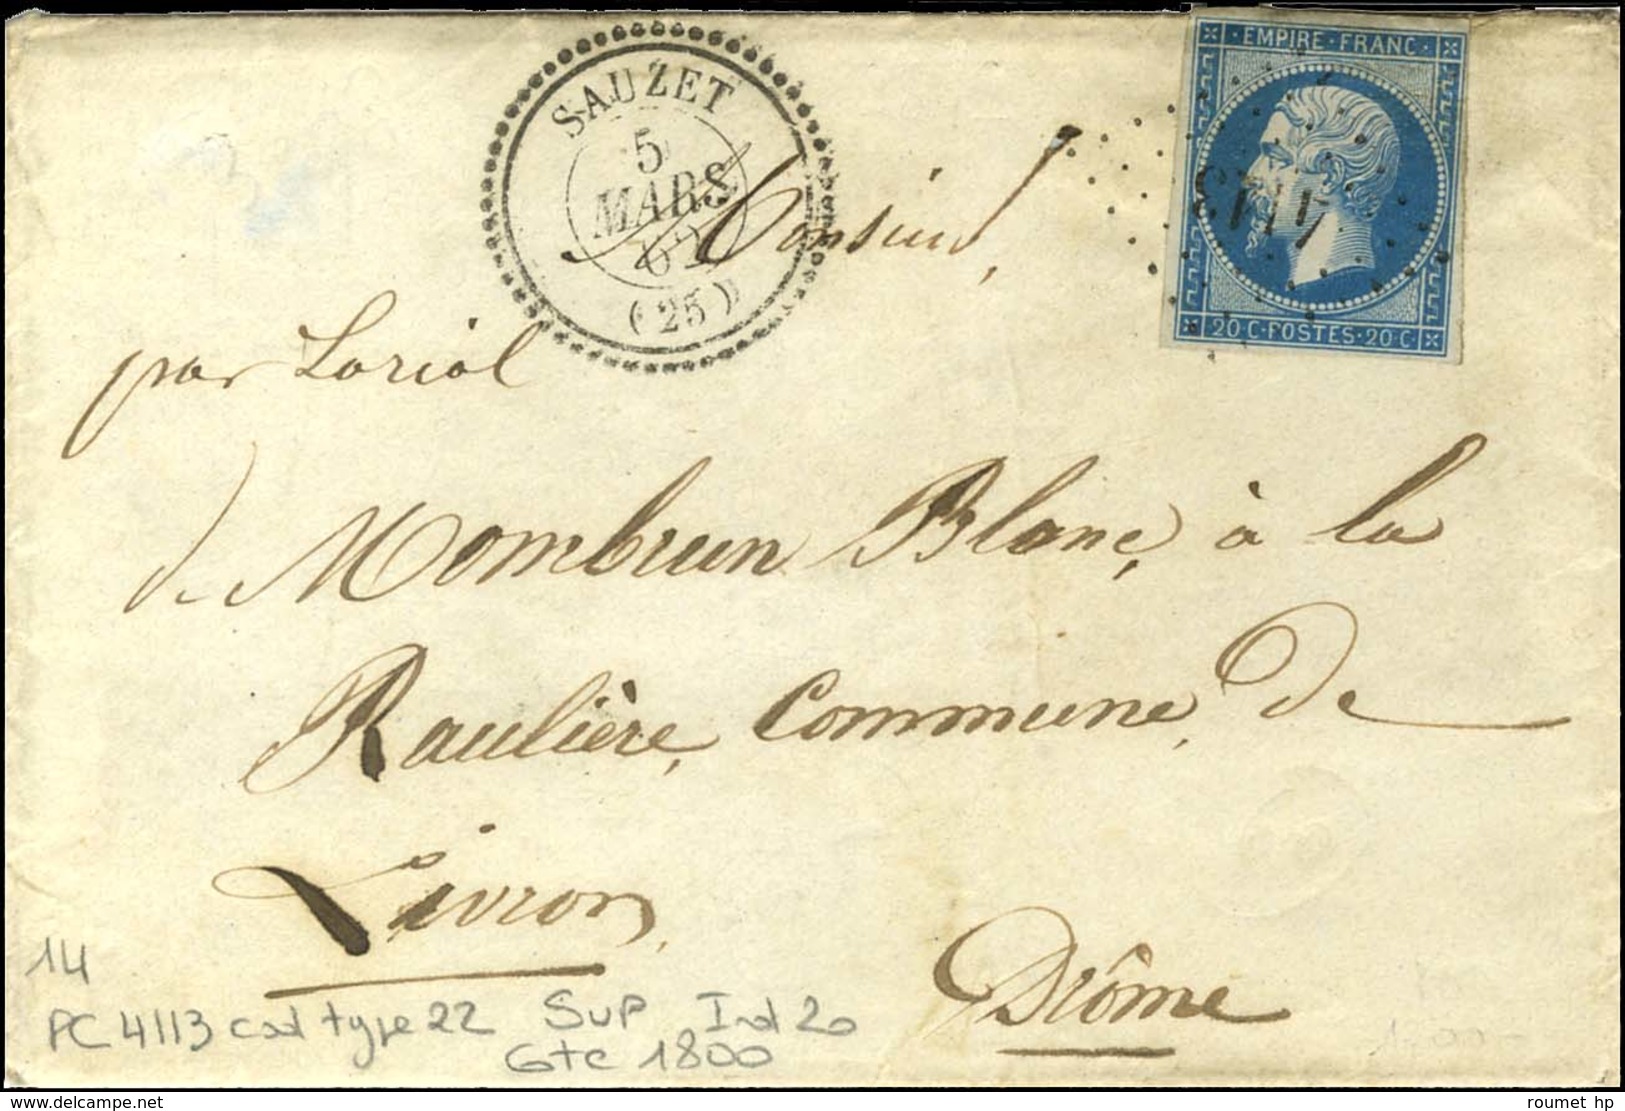 EMPIRE · FRANC
20 C · POSTES · 20 C
4113
SAUZET
5
MARS
62
(25)
Monsieur,
par Loriol
de Mombrun Blanc, à la
Raulière, Commune, De
Livron,
Drôme
14
PC 4113 cad type 22 Sup Ind 20
Cote 1800
roumet hp